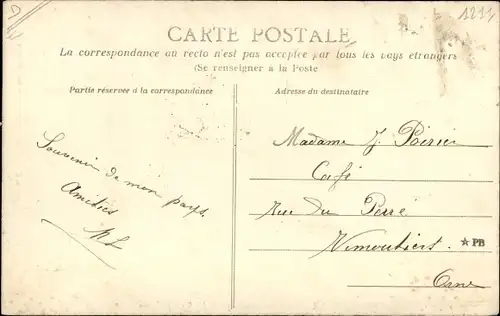 1214
D
CARTE POSTALE
La correspondance au recto n'est pas acceptée par tous les pays étrangers
(Se renseigner à la Poste
Partie réservée à la correspondance
Adresse du destinataire
Souvenir de mon pays.
Amitiés
Madame J. Poirier
Café
Rue du Perré
Vimoutiers.
★PB
Orne